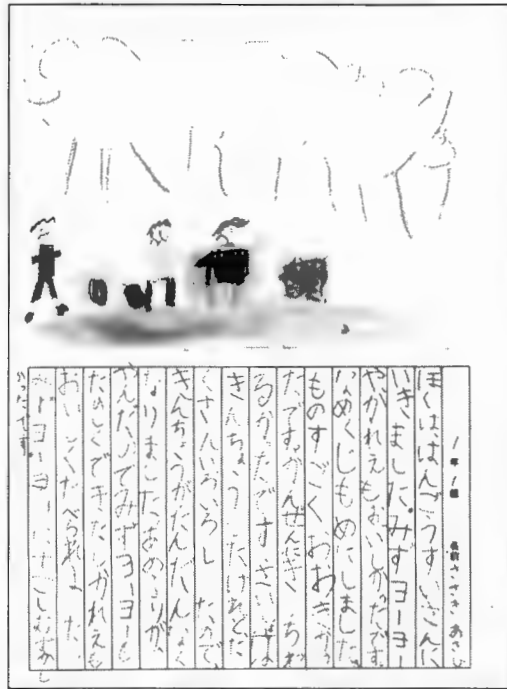 1年1組 名前 ささき あさひ
ぼくははんごうすいさんに
いきました。みずヨーヨー
やかれえもおいしかったです。
なめくじもめにしました。
ものすごくおおきかっ
たです。かんぜんにぎ
るがたです さいしょは
きんちょう たけれどた
くさんいろいろし たので、
きんちょうがだんだんなく
なりました。あめふりが
やんだ てみずヨーヨーも
たのしくできたしかれえも
おいしくたべられました。
みずヨーヨー すこしむずかし
かったです。